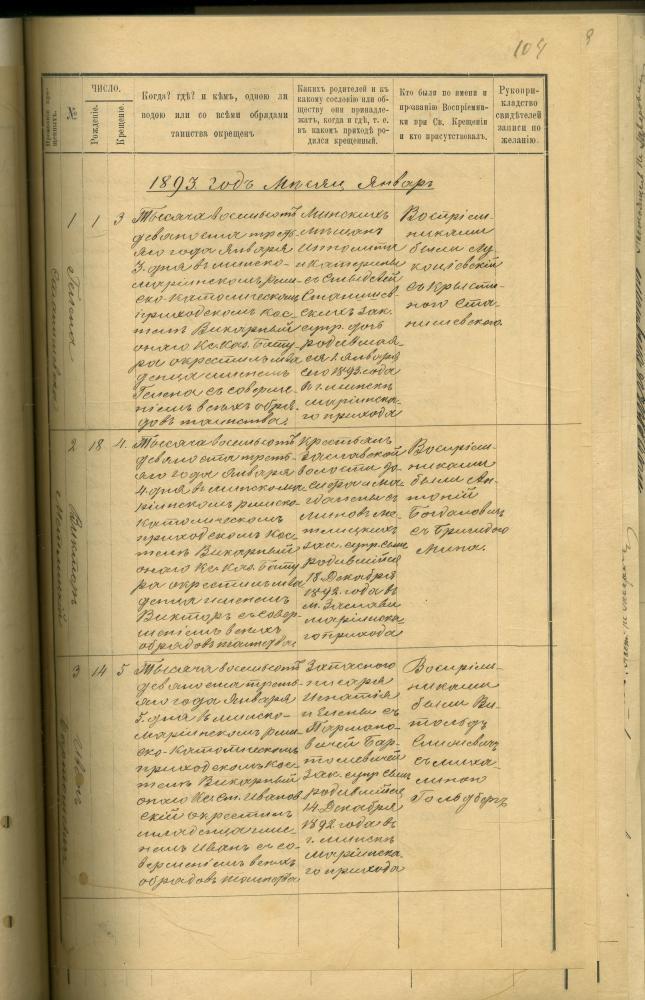 104
№
ЧИСЛО.
Рожденіе.
Крещеніе.
Когда? гдѣ? и кѣмъ, одною ли
водою или со всѣми обрядами
таинства окрещенъ
Какихъ родителей и къ
какому сословію или об-
ществу они принадле-
жатъ, когда и гдѣ, т. е.
въ какомъ приходѣ ро-
дился крещенный.
Кто были по имени и
прозванію Воспріемни-
ки при Св. Крещеніи
и кто присутствовалъ.
Рукопри-
кладство
свидѣтелей
записи по
желанію.
1893 годъ Мѣсяц Январъ
1
1
3
Тысяча восемьсотъ
девяноста треть-
яго года Января
3. дня въ минско-
маріинскомъ рим-
ско-католическомъ
приходскомъ кос-
телѣ Викарный
онаго Кс. Каз. Бату-
ра окрестилъ мла
денца именем
Гелена съ соверше-
ніемъ всѣхъ обря-
довъ таинства.
Минскихъ
мѣщанъ
Ипполита
и Катерины
Станишев-
скихъ зак.
супр. дочь
родившая-
ся 1 Января
сего 1893 года
въ г. Минскѣ
маріинска-
го прихода
Воспріем-
никами
были Лу-
съ Крысти-
ною Ста-
нишевскою.
Гелена
Станишевская
2
18
4.
Тысяча восемьсотъ
девяноста треть-
яго года Января
4 дня въ минскома-
ріинскомъ римско-
католическомъ
приходскомъ кос-
телѣ Викарный
онаго Кс. Каз. Бату
ра окрестилъ мла
денца именем
Викторъ съ совер-
шеніемъ всѣхъ
обрядовъ таинства
Крестьянъ
Заславской
волости
зак. супр. сынъ
родившійся
18 Декабря
1892 года въ
м. Заславѣ
маріинска-
го прихода
Воспріем-
никами
были Ан-
тоній
Богдановичъ
съ Бригидою
Викторъ
3
14
5
Тысяча восемьсотъ
девяноста треть-
яго года Января
5. дня въ минско-
маріинскомъ рим-
ско-католическомъ
приходскомъ кос-
телѣ Викарный
онаго Кс. Ст. Иванов
скій окрестилъ
младенца име-
немъ Иванъ съ со-
вершеніемъ всѣхъ
обрядовъ таинства
Запаснаго
писаря
Игнатія
и Елены съ
Пармано-
вичей Бар-
тошевичей
зак. супр. сынъ
родившійся
14 Декабря
1892 года въ
г. Минскѣ
маріинска-
го прихода
Воспріем-
никами
были Ви-
тольдъ
съ Миха-
линою
Гольдбергъ
Иванъ
Бартошевичъ